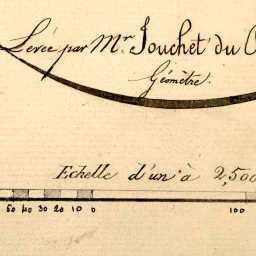 Levée par Mr. Jouchet du
Géomètre.
Echelle d'un à 2,500
50 40 30 20 10 0 100